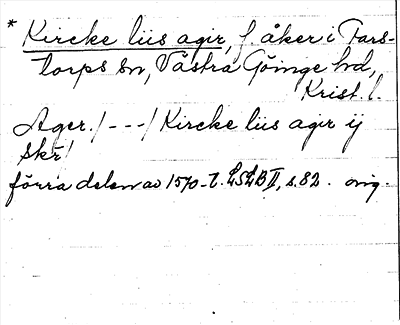 * Kircke liis agir, f. åker i Fars-
torps sn, Västra Göinge hd,
Krist. l.
Ager. / - - - / Kircke liis agir ij
skr!
förra delen av 1570-t. LSLB II, s. 82. orig.